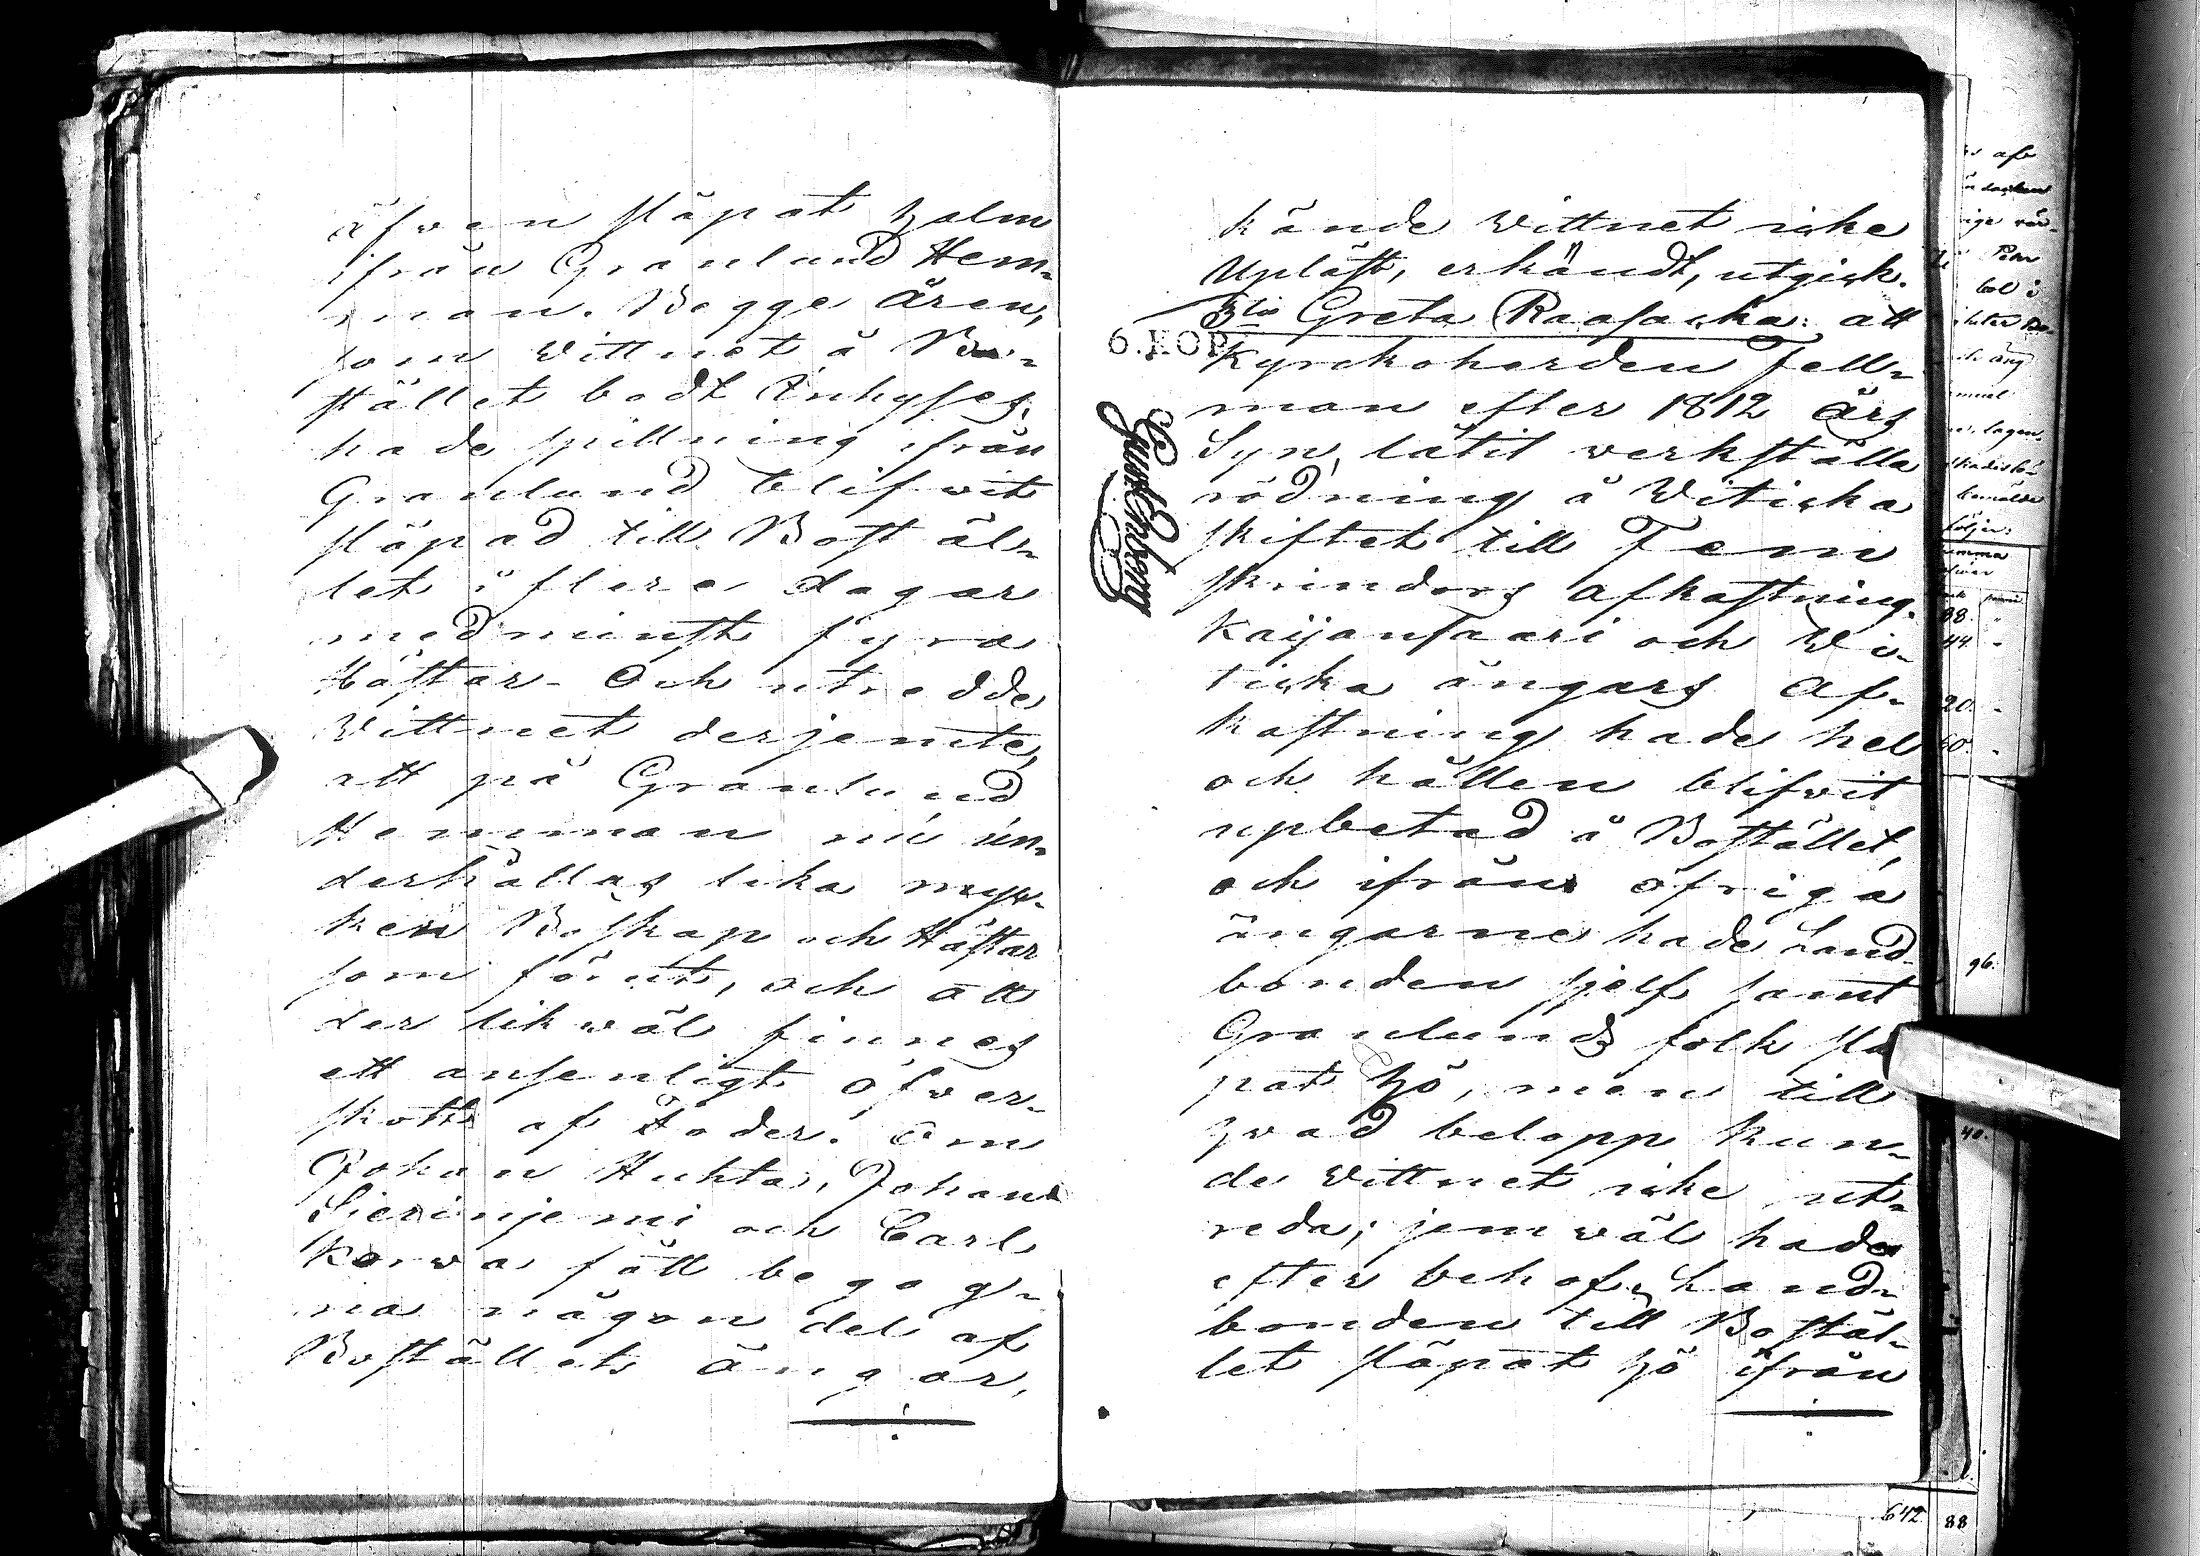 äfwen släpat halm
ifrån Granlund Hem-
man. Begge åren,
som Wittnet å Bo-
stället bodt Inhyses,
hade spillning ifrån
Granlund blifwit
släpad till Bostäl-
let i flere dagar
med minst fyra
Hästar. Och utredde
Wittnet derjemte,
att på Granlund
Hemman nu un-
derhållas lika myc-
ken Boskap och Hästar
som förut, och att
der likwäl finnes
ett ansenligt öfwer-
skott af Foder. Om
Johan Huhta, Johan
Sierinjemi och Carl
Korwa fått begag-
na någon del af
Boställets ängar,
kände Wittnet icke
Upläst, erkändt, utgick.
3tio Greta Raasacka: att
6. KOP.
Kyrckoherden Fell-
man efter 1812 års
Syn, låtit verkställa
rödning å Witicka
skiftet till Fem
skrinders afkastning.
Kaijansaari och Wi-
ticka ängars af-
kastning hade hel
och hållen blifwit
upbetad å Bostället,
och ifrån öfriga
ängarne hade Land-
bonden sjelf samt
Granlunds folk slä
pat hö, men till
hwad belopp kun-
de Wittnet icke ut-
reda; jemwäl hade
efter behof Land-
bonden till Bostäl-
let släpat hö ifrån
96.
40.
642 88